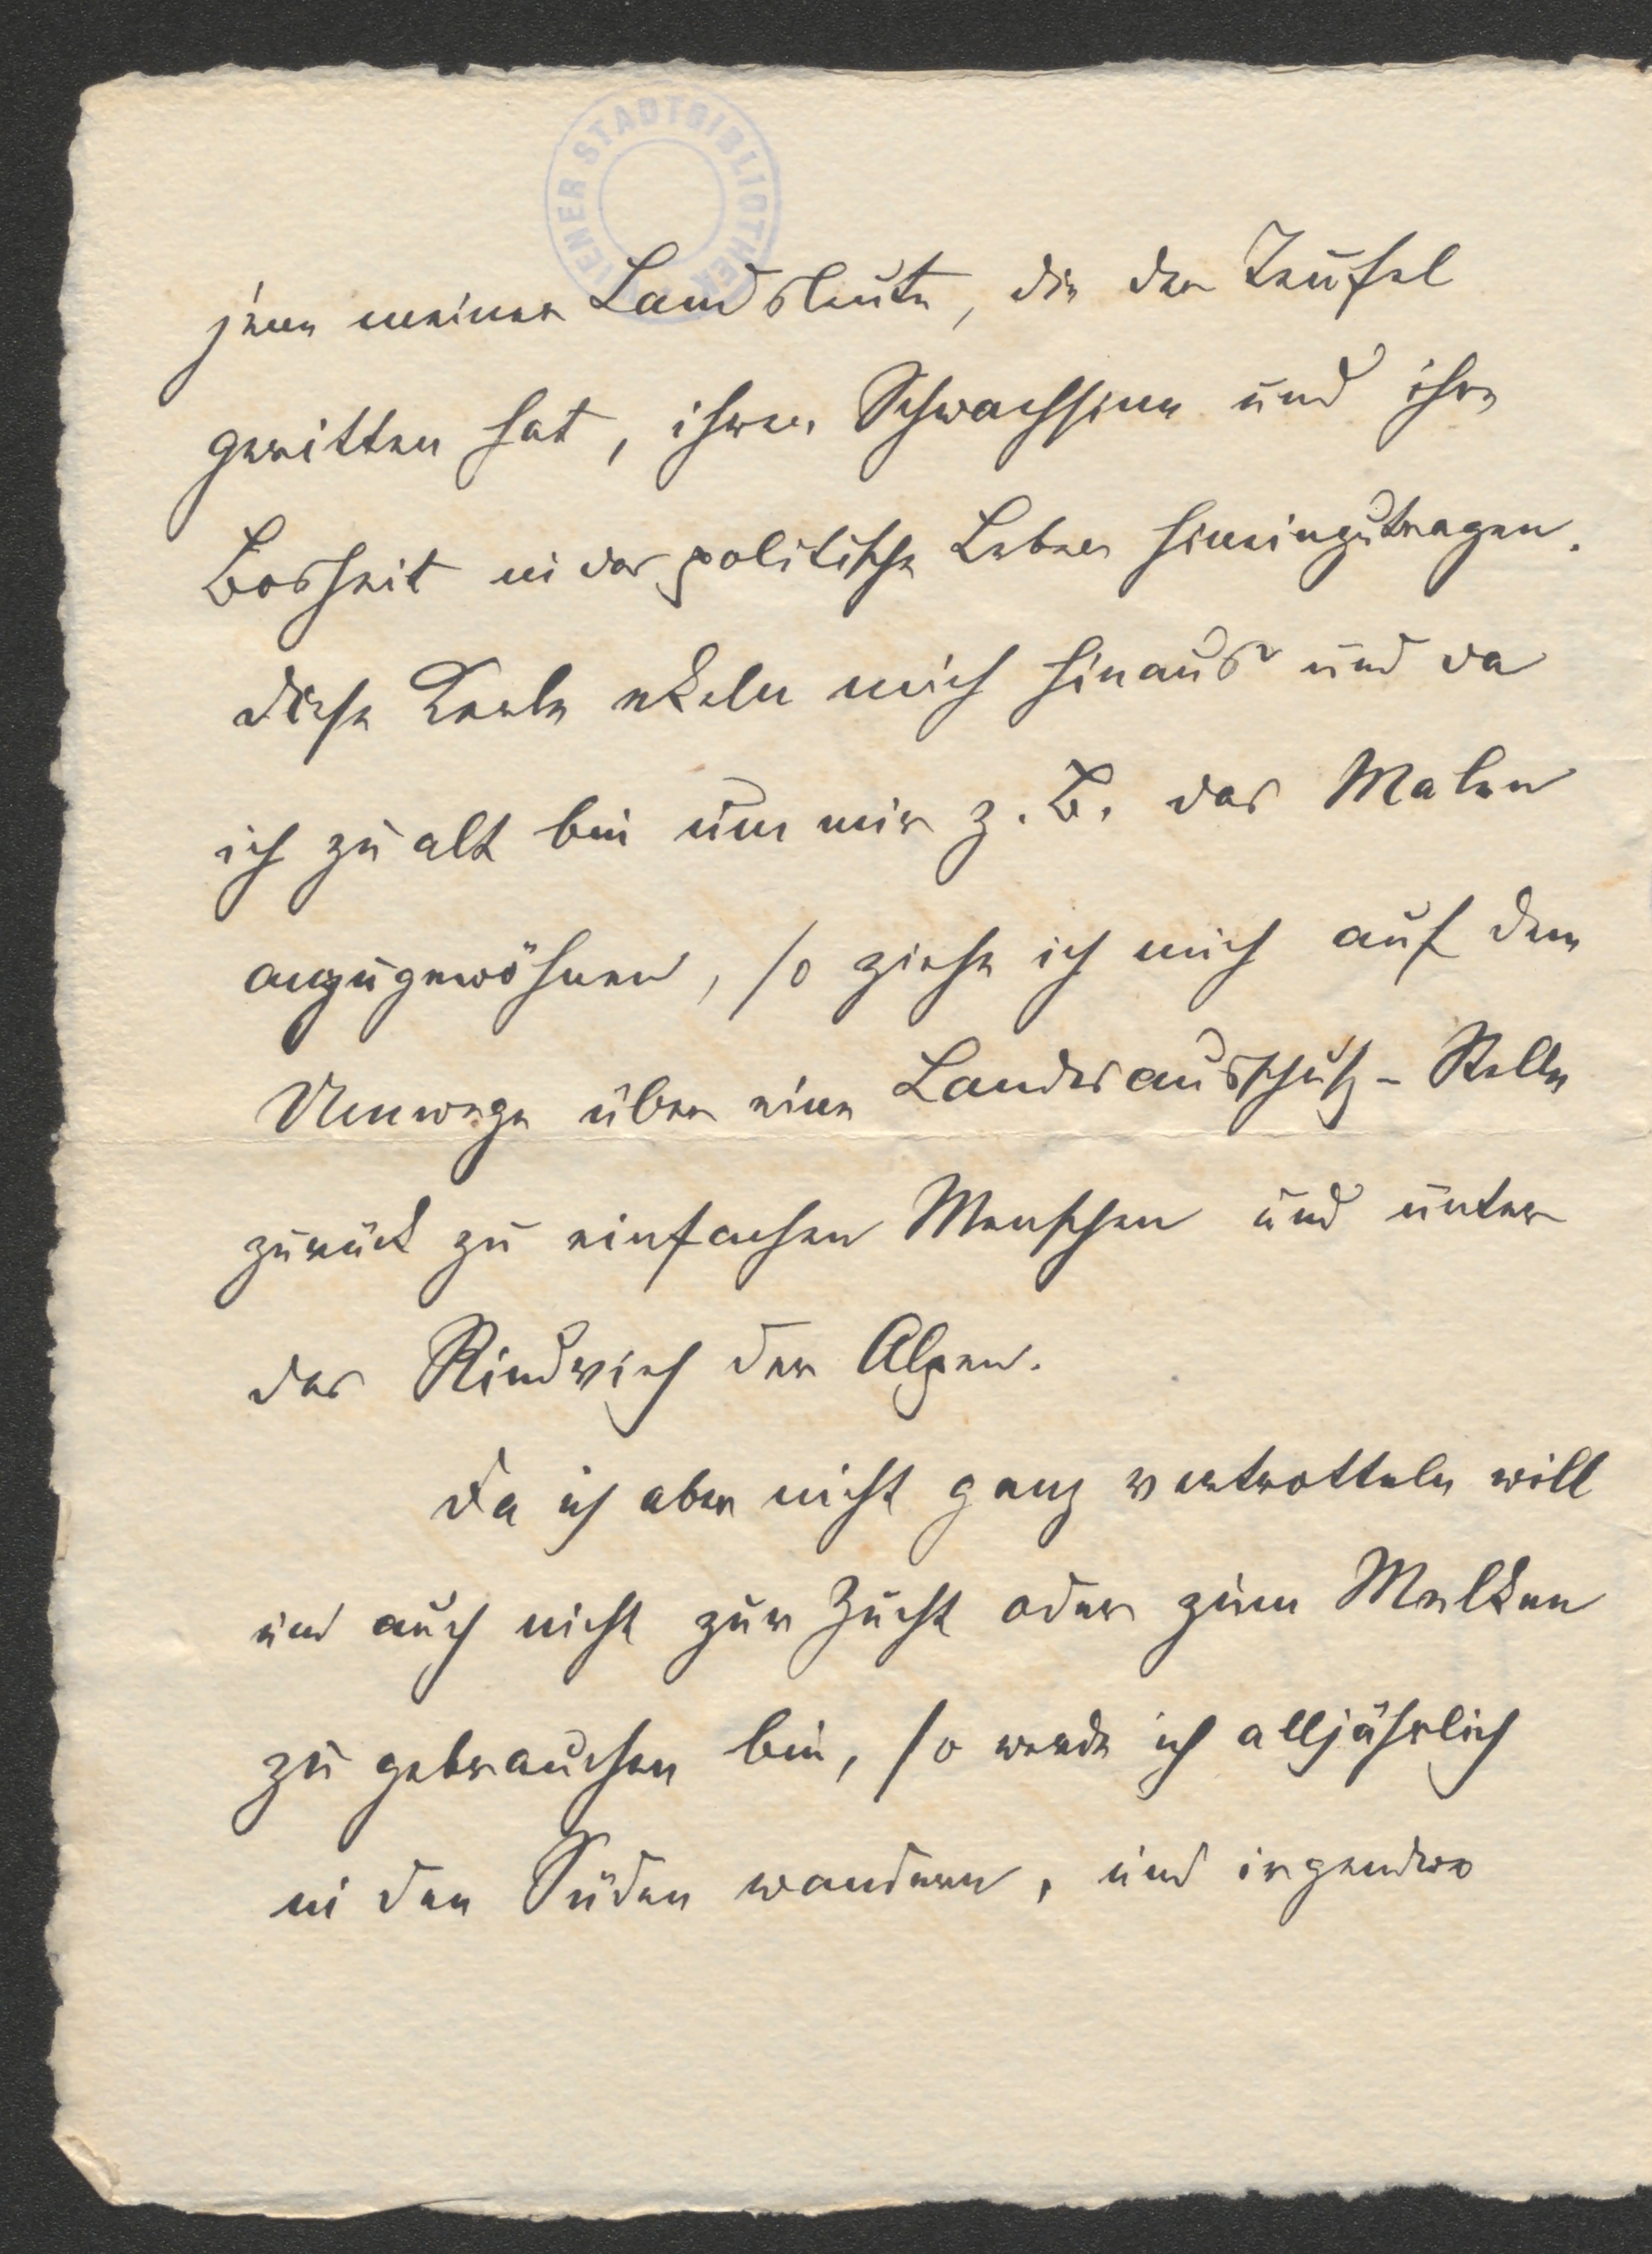 WIENER STADTBIBLIOTHEK
jene meiner Landsleute, die der Teufel
geritten hat, ihren Schwachsinn und ihre
Bosheit in das politische Leben hineinzutragen.
Diese Kerle ekeln mich hinaus und da
ich zu alt bin um mir z. B. das Malen
anzugewöhnen, so ziehe ich mich auf dem
Umwege über eine Landesausschuß-Stelle
zurück zu einfachen Menschen und unter
das Rindvieh der Alpen.
Da ich aber nicht ganz vertrotteln will
und auch nicht zur Zucht oder zum Melken
zu gebrauchen bin, so werde ich alljährlich
in den Süden wandern, und irgendwo